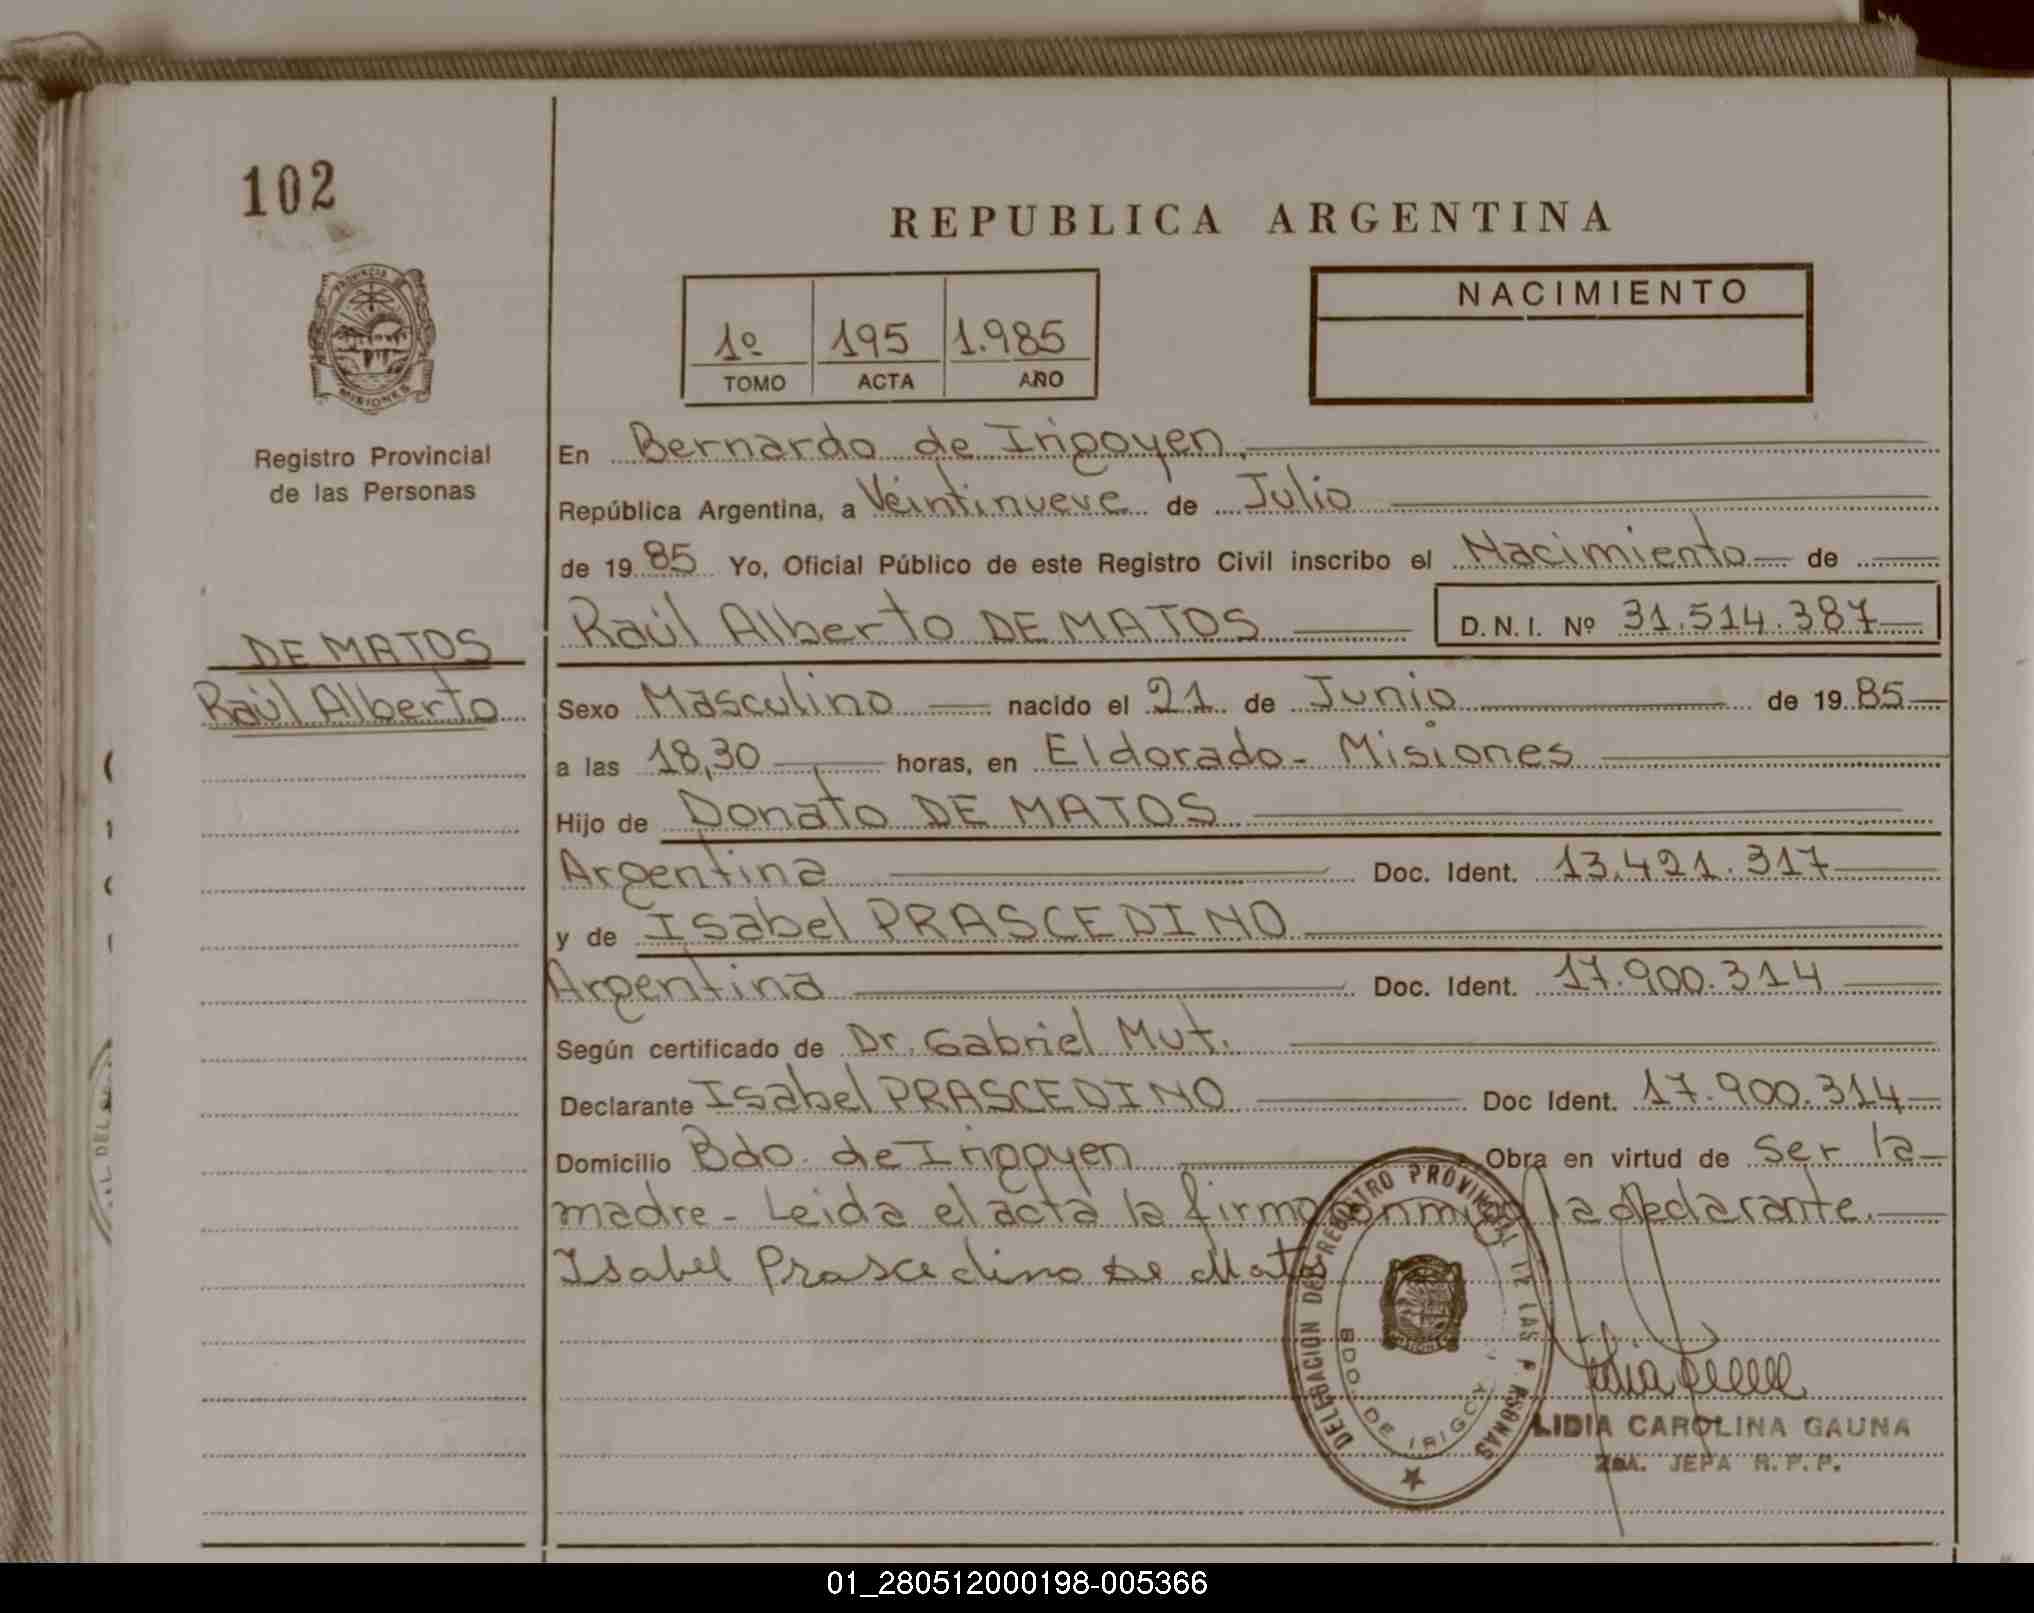 102
REPUBLICA ARGENTINA
PROVINCIA DE
MISIONES
NACIMIENTO
1º 195 1.985
TOMO ACTA AÑO
Registro Provincial
de las Personas
En Bernardo de Irigoyen.
República Argentina, a Veintinueve de Julio
de 19 85 Yo, Oficial Público de este Registro Civil inscribo el Nacimiento de
Raúl Alberto DE MATOS D.N.I. Nº 31.514.387
DE MATOS
Raúl Alberto
Sexo Masculino nacido el 21 de Junio de 19 85
a las 18,30 horas, en Eldorado - Misiones
Hijo de Donato DE MATOS
Argentina Doc. Ident. 13.421.317
y de Isabel PRASCEDINO
Argentina Doc. Ident. 17.900.314
Según certificado de Dr. Gabriel Mut.
Declarante Isabel PRASCEDINO Doc Ident. 17.900.314
Domicilio Bdo. de Irigoyen Obra en virtud de ser la
madre - Leida el acta la firma conmigo la declarante.
Isabel Prascedino de Mato
DELEGACION DEL REGISTRO PROVINCIAL DE LAS PERSONAS
BDO. DE IRIGOY
LIDIA CAROLINA GAUNA
2da. JEFA R.P.P.
01_280512000198-005366